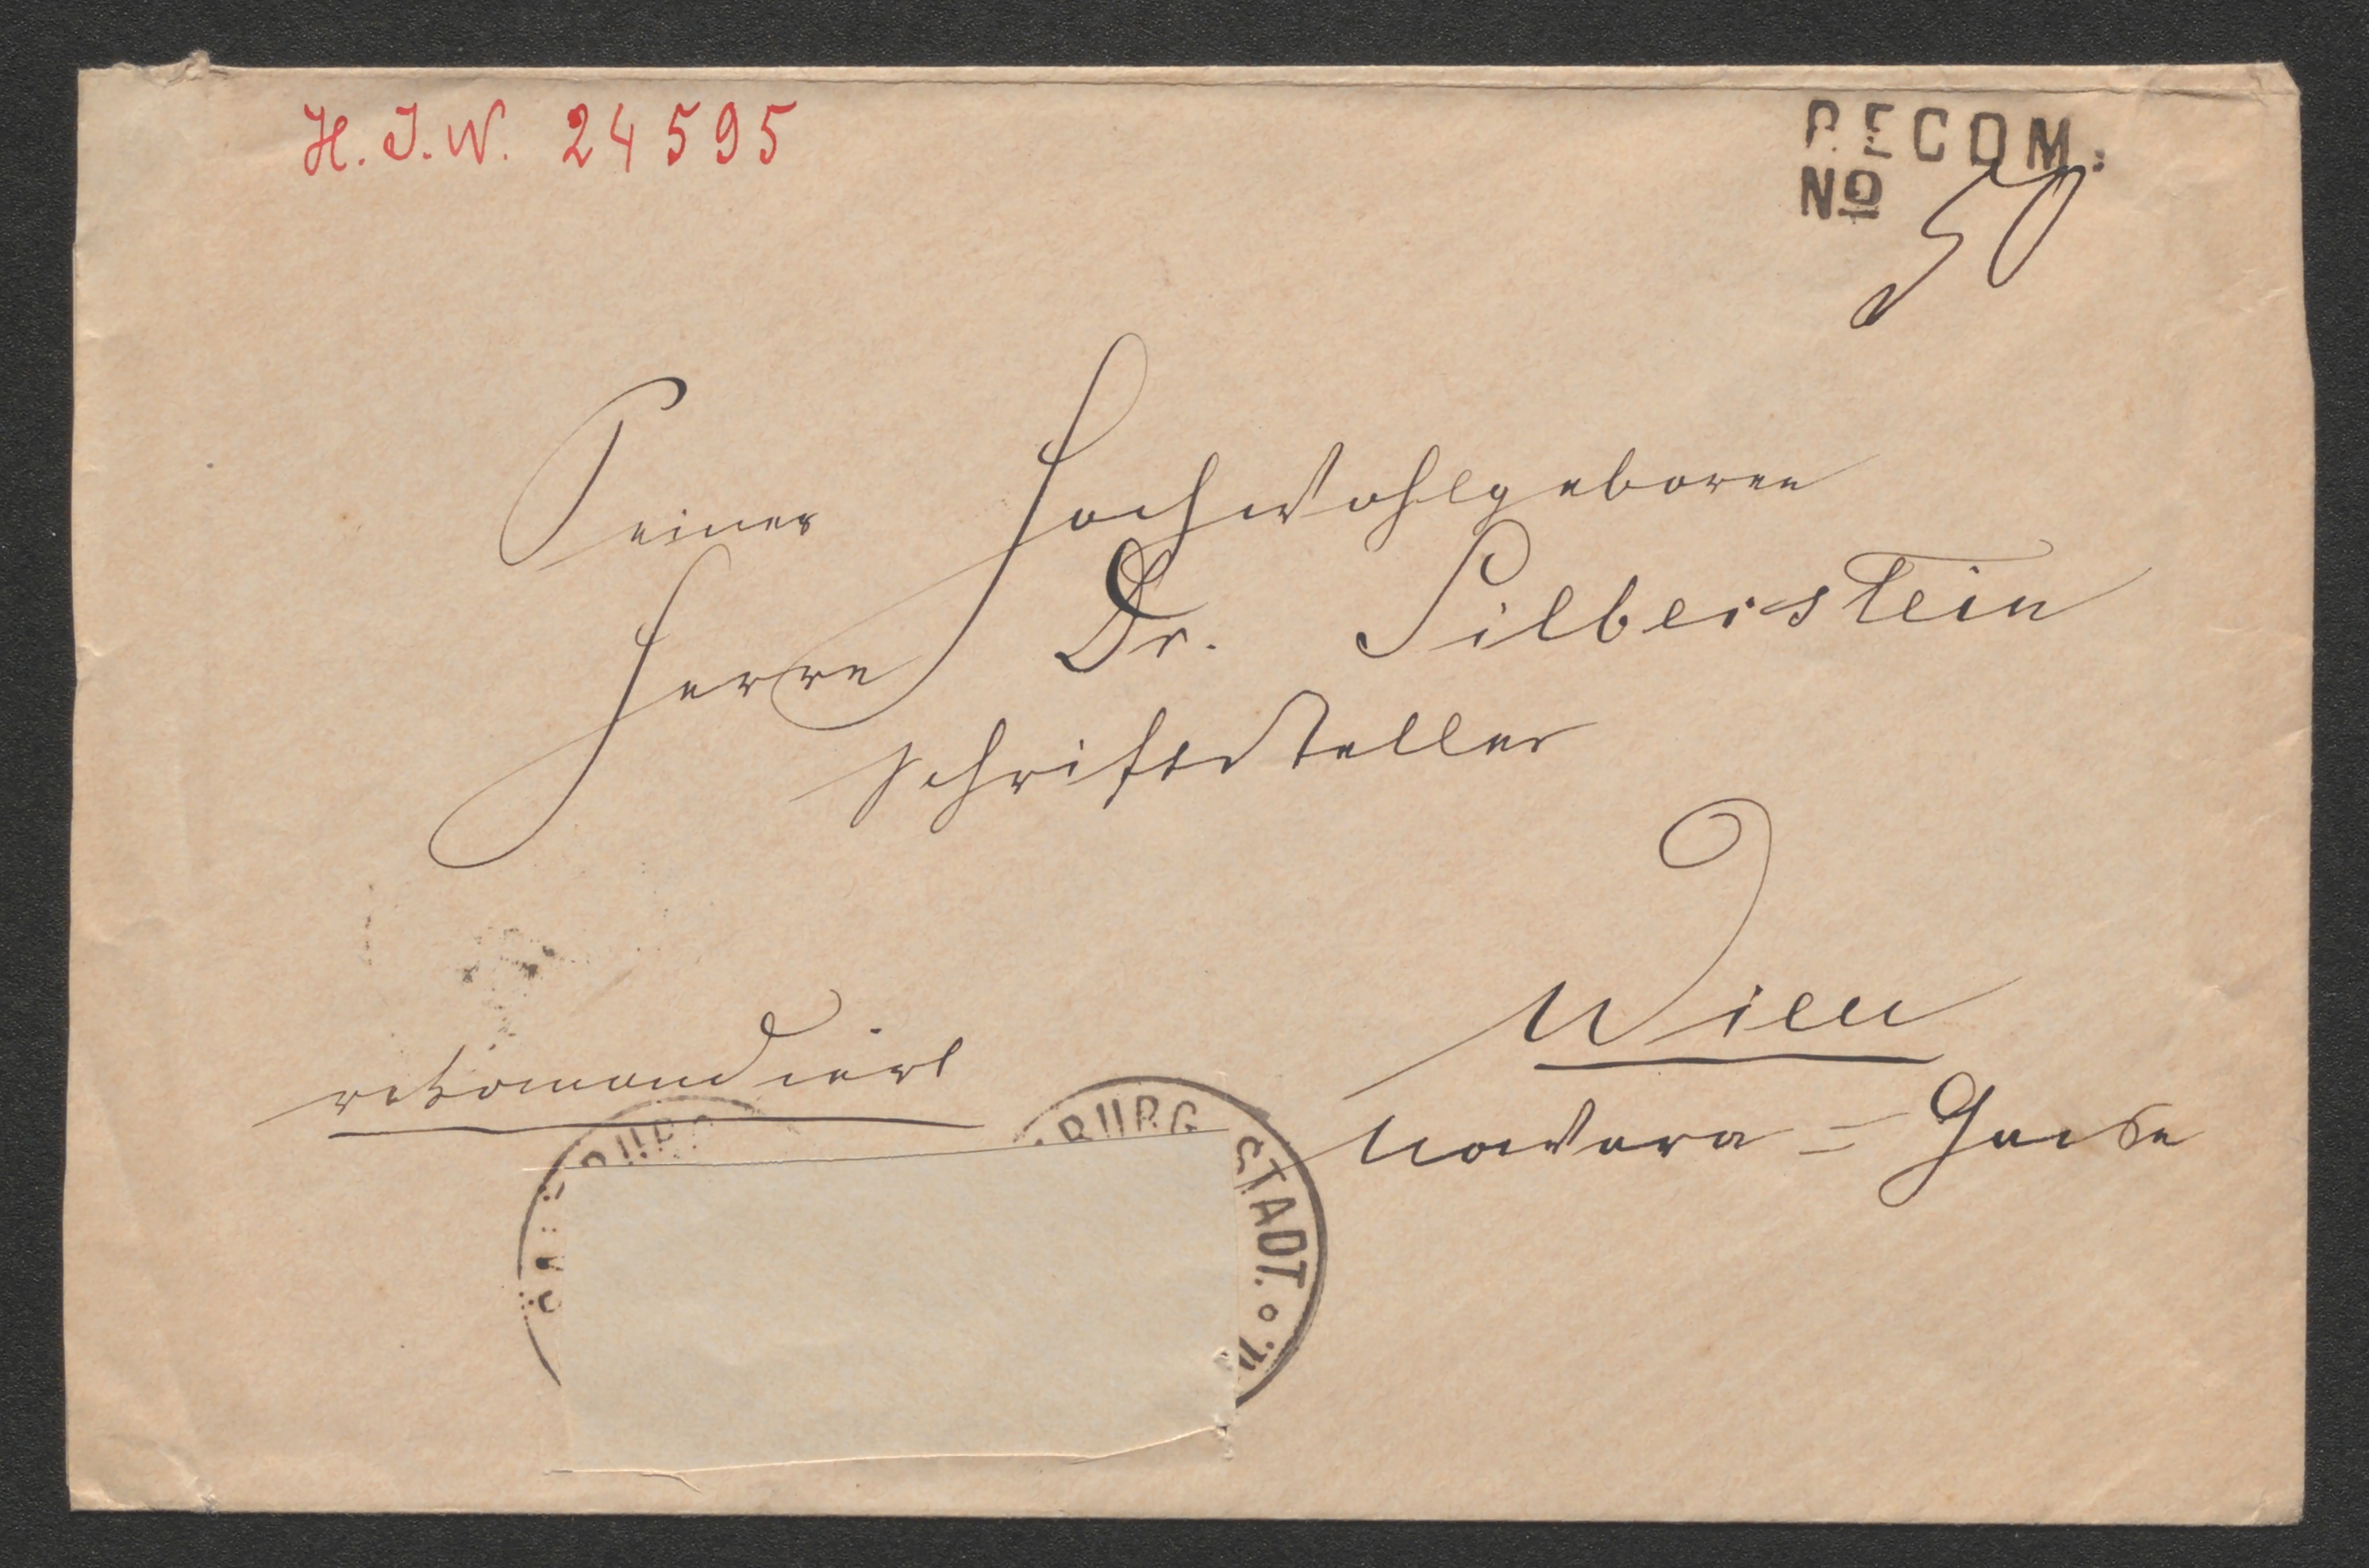 H. I. N. 24595
RECOM.
No 50
Seiner Hochwohlgeboren
Herrn Dr. Silberstein
Schriftsteller
Wien
rekomandiert
Novara=Gasse
BURG
BURG STADT.